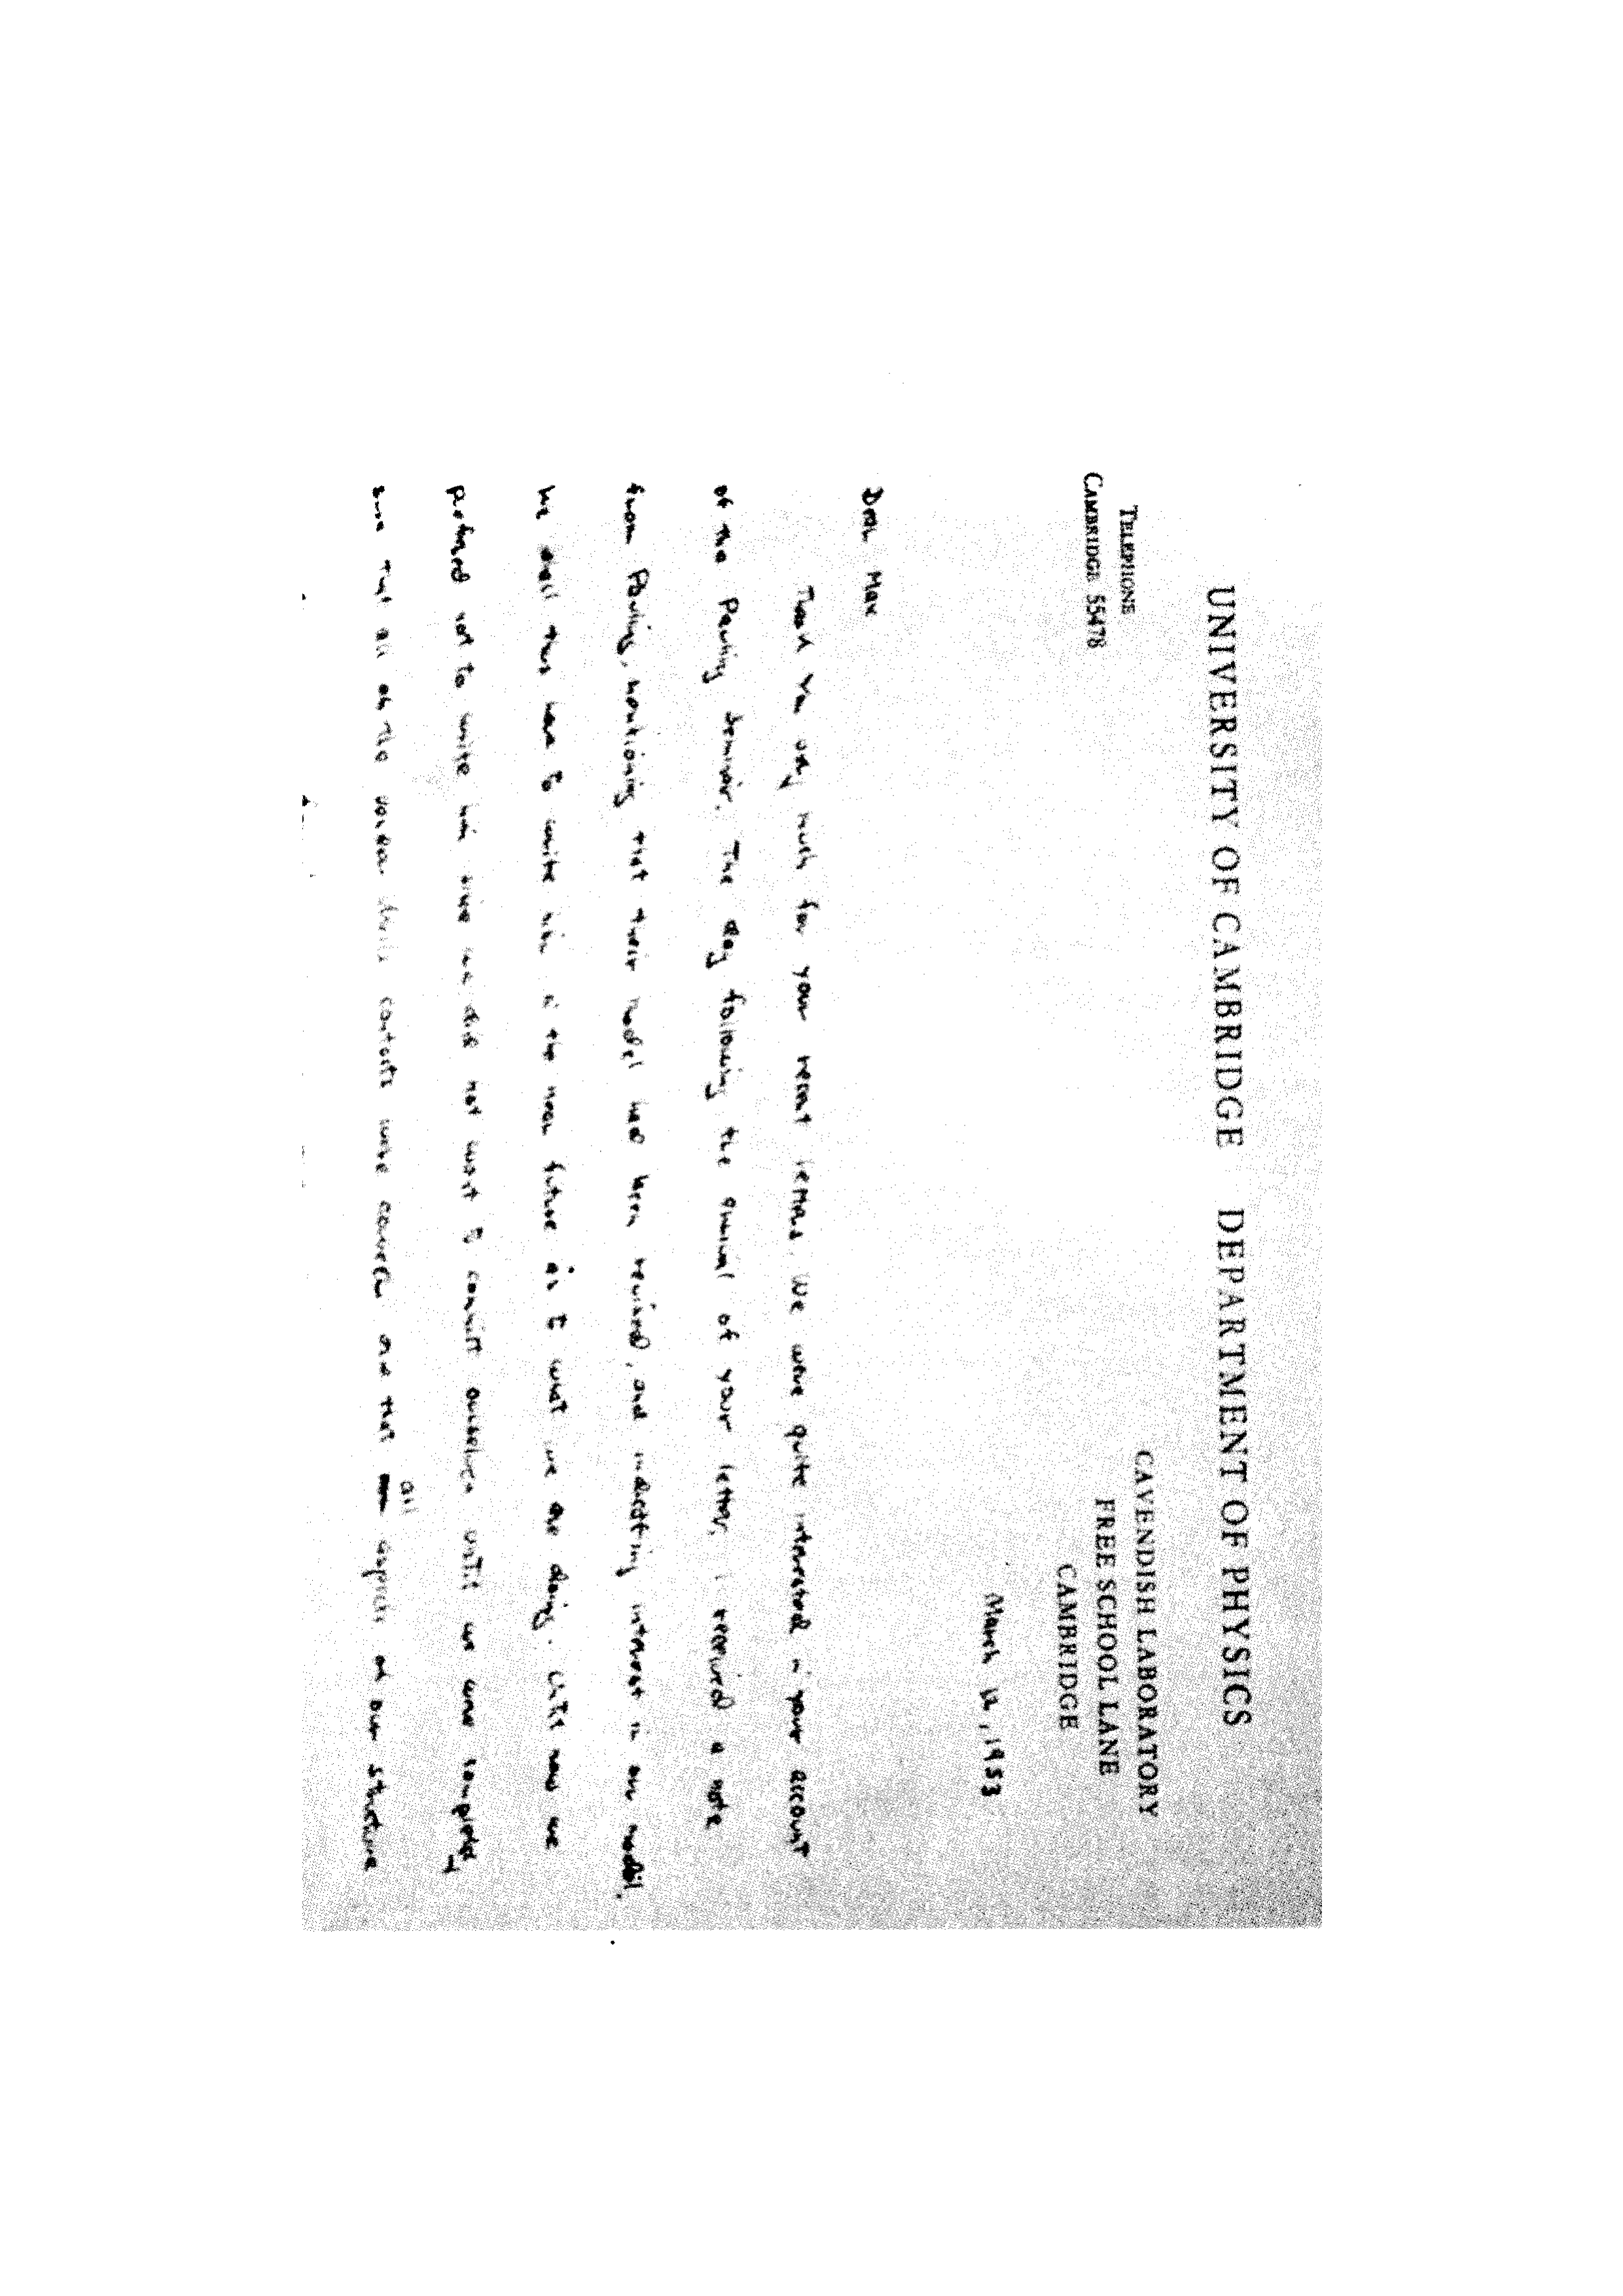 UNIVERSITY OF CAMBRIDGE DEPARTMENT OF PHYSICS
TELEPHONE
CAMBRIDGE 55478
CAVENDISH LABORATORY
FREE SCHOOL LANE
CAMBRIDGE
March 12, 1953
Dear Max
Thank you very much for your recent letters. We were quite interested in your account
of the Pauling Seminar. The day following the arrival of your letter, I received a note
from Pauling, mentioning that their model had been revised, and indicating interest in our model.
We shall thus have to write him in the near future as to what we are doing. Until now we
preferred not to write him since we did not want to commit ourselves until we were completely
sure that all of the van der Waals contacts were correct and that all aspects of our structure